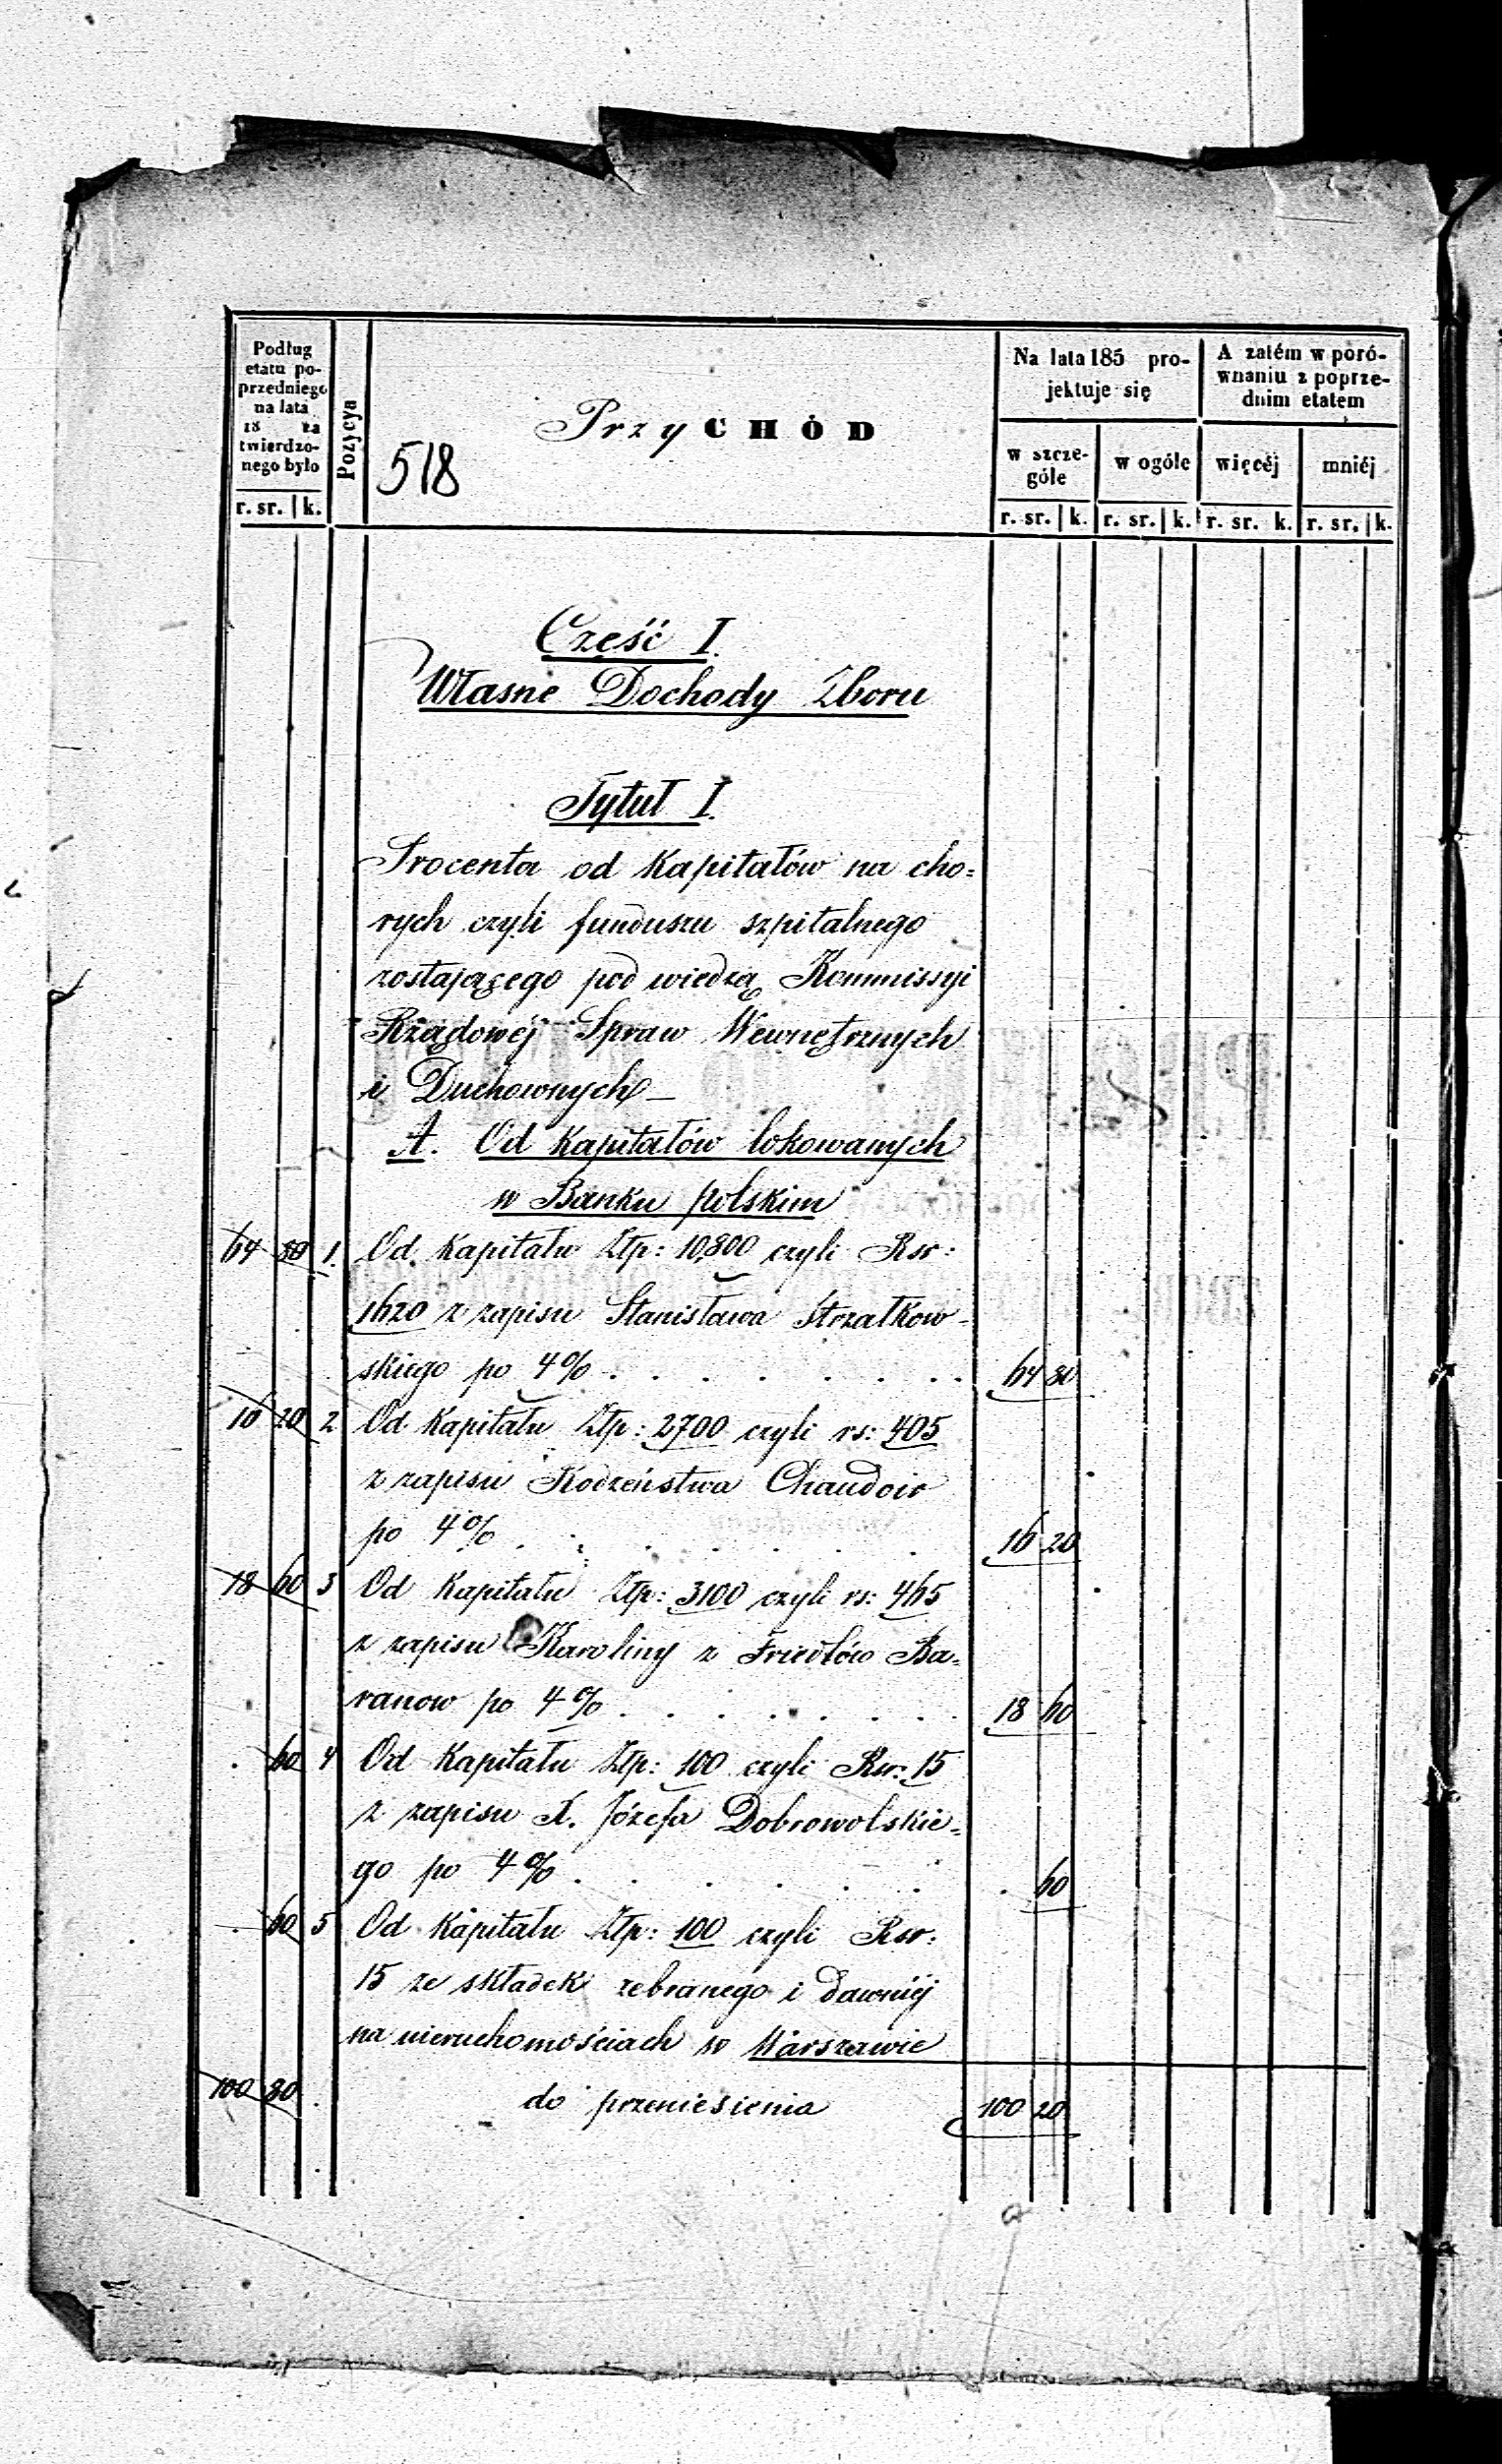 Podług
etatu po-
przedniego
na lata
18 za
twierdzo-
nego było
r. sr. k.
Pozycya
518
PrzyCHÓD
Na lata 185 pro-
jektuje się
w szcze-
góle
w ogóle
r. sr. k. r. sr. k.
A zatém w poró-
wnaniu z poprze-
dnim etatem
więcéj mniéj
r. sr. k. r. sr. k.
Część I.
Własne Dochody Zboru
Tytuł I.
Procenta od Kapitałów na cho=
rych czyli funduszu szpitalnego
zostającego pod wiedzą Kommissyi
Rządowéj Spraw Wewnętrznych
i Duchownych
A. Od Kapitałów lokowanych
w Banku polskim
64 80 1. Od Kapitału Złp: 10,800 czyli Rsr:
1620 z zapisu Stanisława Strzałkow-
skiego po 4% . . . . . . . . 64 80
16 20 2 Od Kapitału Złp: 2700 czyli rs: 405
z zapisu Rodzeństwa Chaudoir
po 4% . . . . . . . 16 20
18 60 3 Od Kapitału Złp: 3100 czyli rs: 465
z zapisu Karoliny z Friedlów Ba=
ranow po 4% . . . . . . . . 18 60
. 60 4 Od Kapitału Złp: 100 czyli Rsr: 15
z zapisu X. Józefa Dobrowolskie=
go po 4% . . . . . . . 60
. 60 5 Od Kapitału Złp: 100 czyli Rsr:
15 ze składek zebranego i dawniéj
na nieruchomościach w Warszawie
100 80 do przeniesienia 100 20